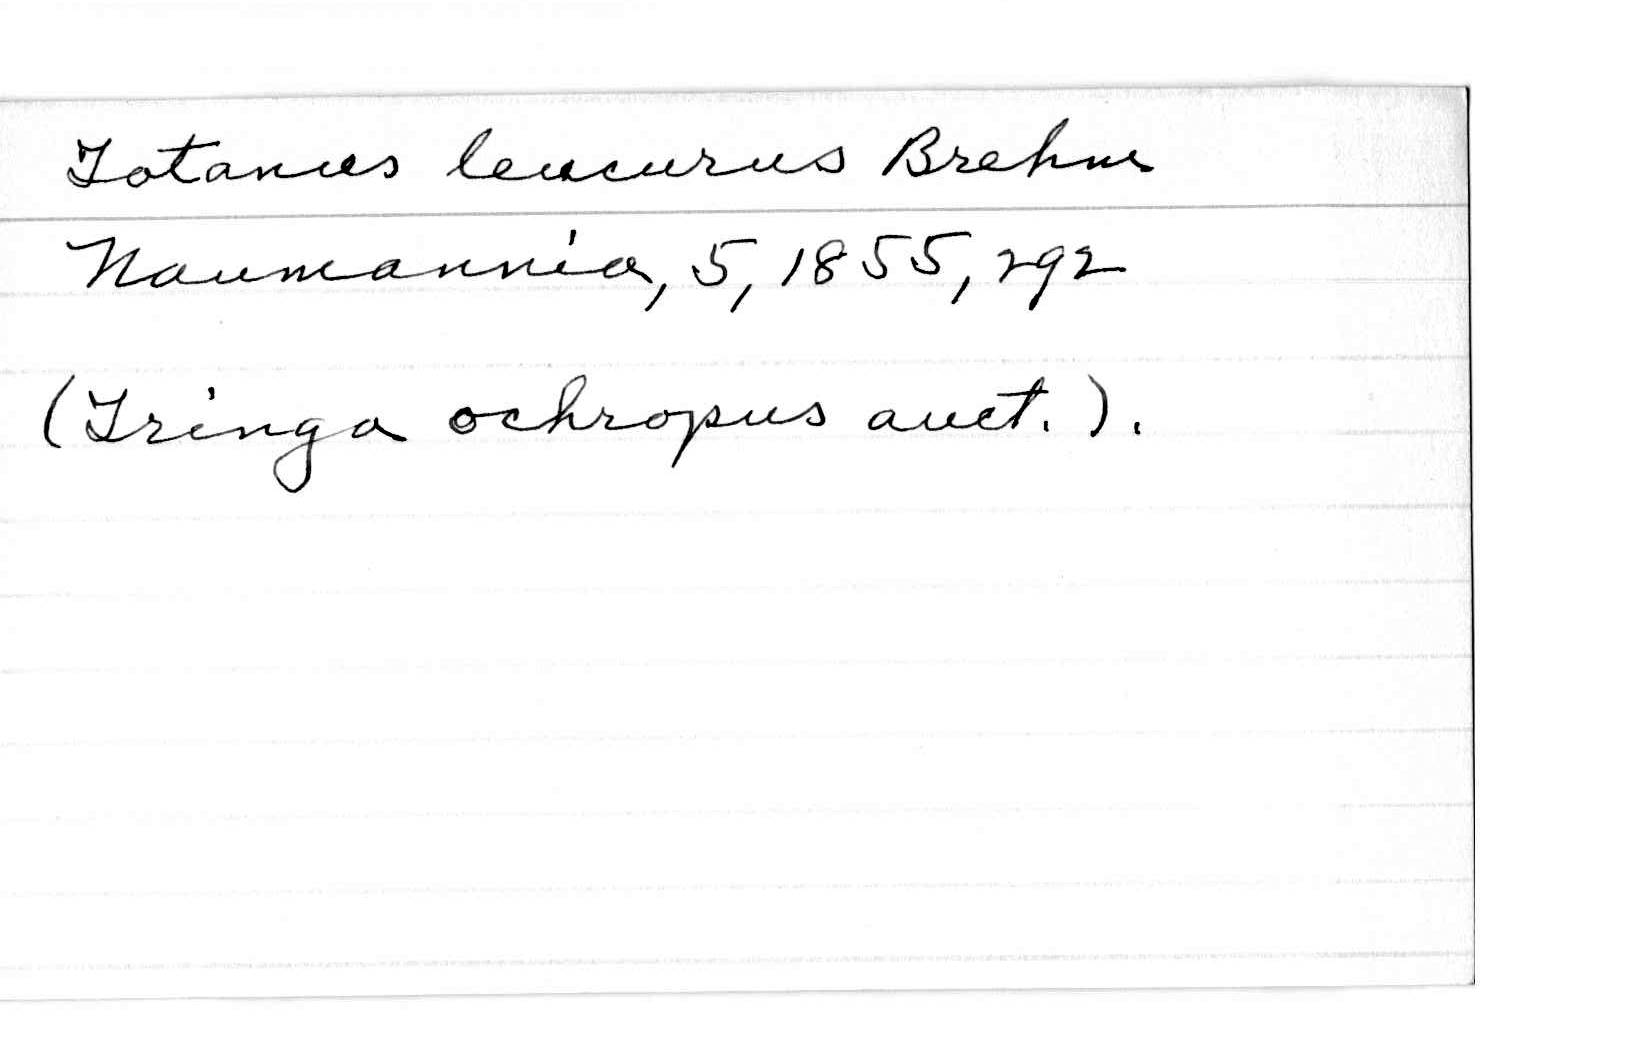 Totanus leucurus Brehm
Naumannia, 5, 1855, 292
(Tringa ochropus auct.).